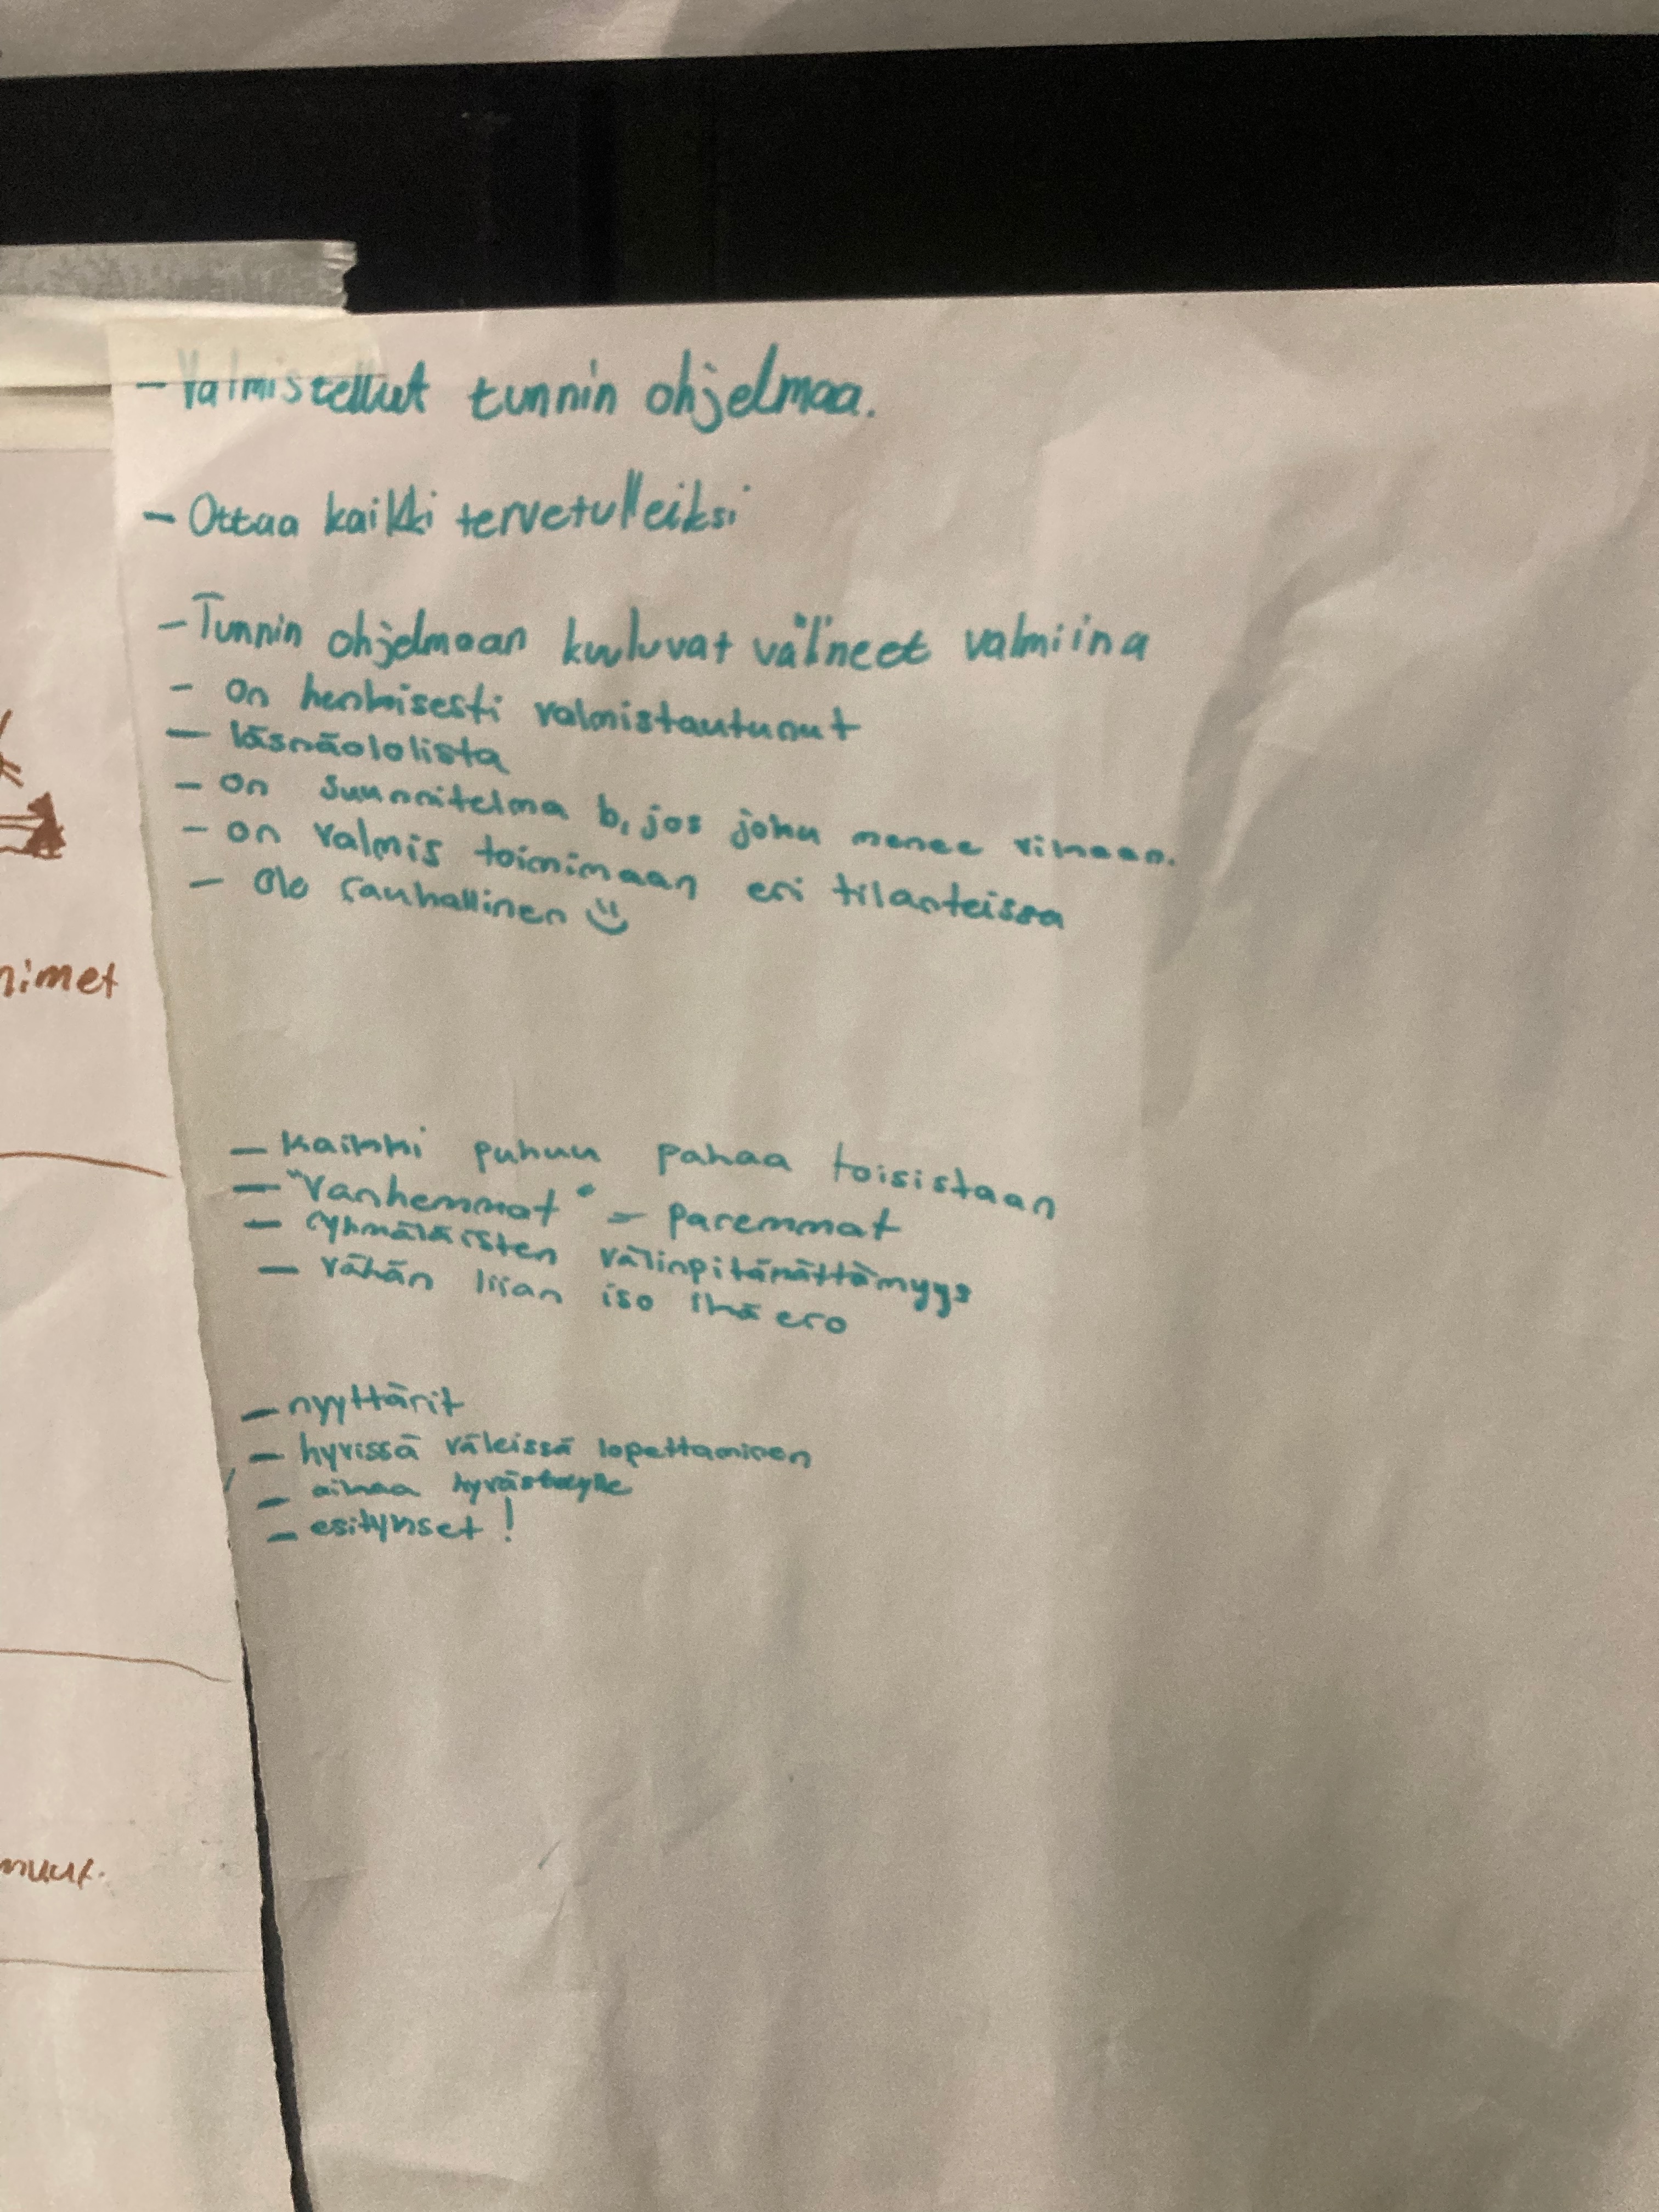 - Valmistellut tunnin ohjelmaa.
- Ottaa kaikki tervetulleiksi
- Tunnin ohjelmaan kuuluvat välineet valmiina
- on henkisesti valmistautunut
- läsnäololista
- on suunnitelma b, jos joku menee vikaan.
- on valmis toimimaan eri tilanteissa
- Olo rauhallinen
nimet
- kaikki puhuu pahaa toisistaan
- "Vanhemmat" = paremmat
- ryhmäläisten välinpitämättömyys
- vähän liian iso ikä ero
- nyyttärit
- hyvissä väleissä lopettaminen
- aikaa hyvästeille
- esitykset!
muut.